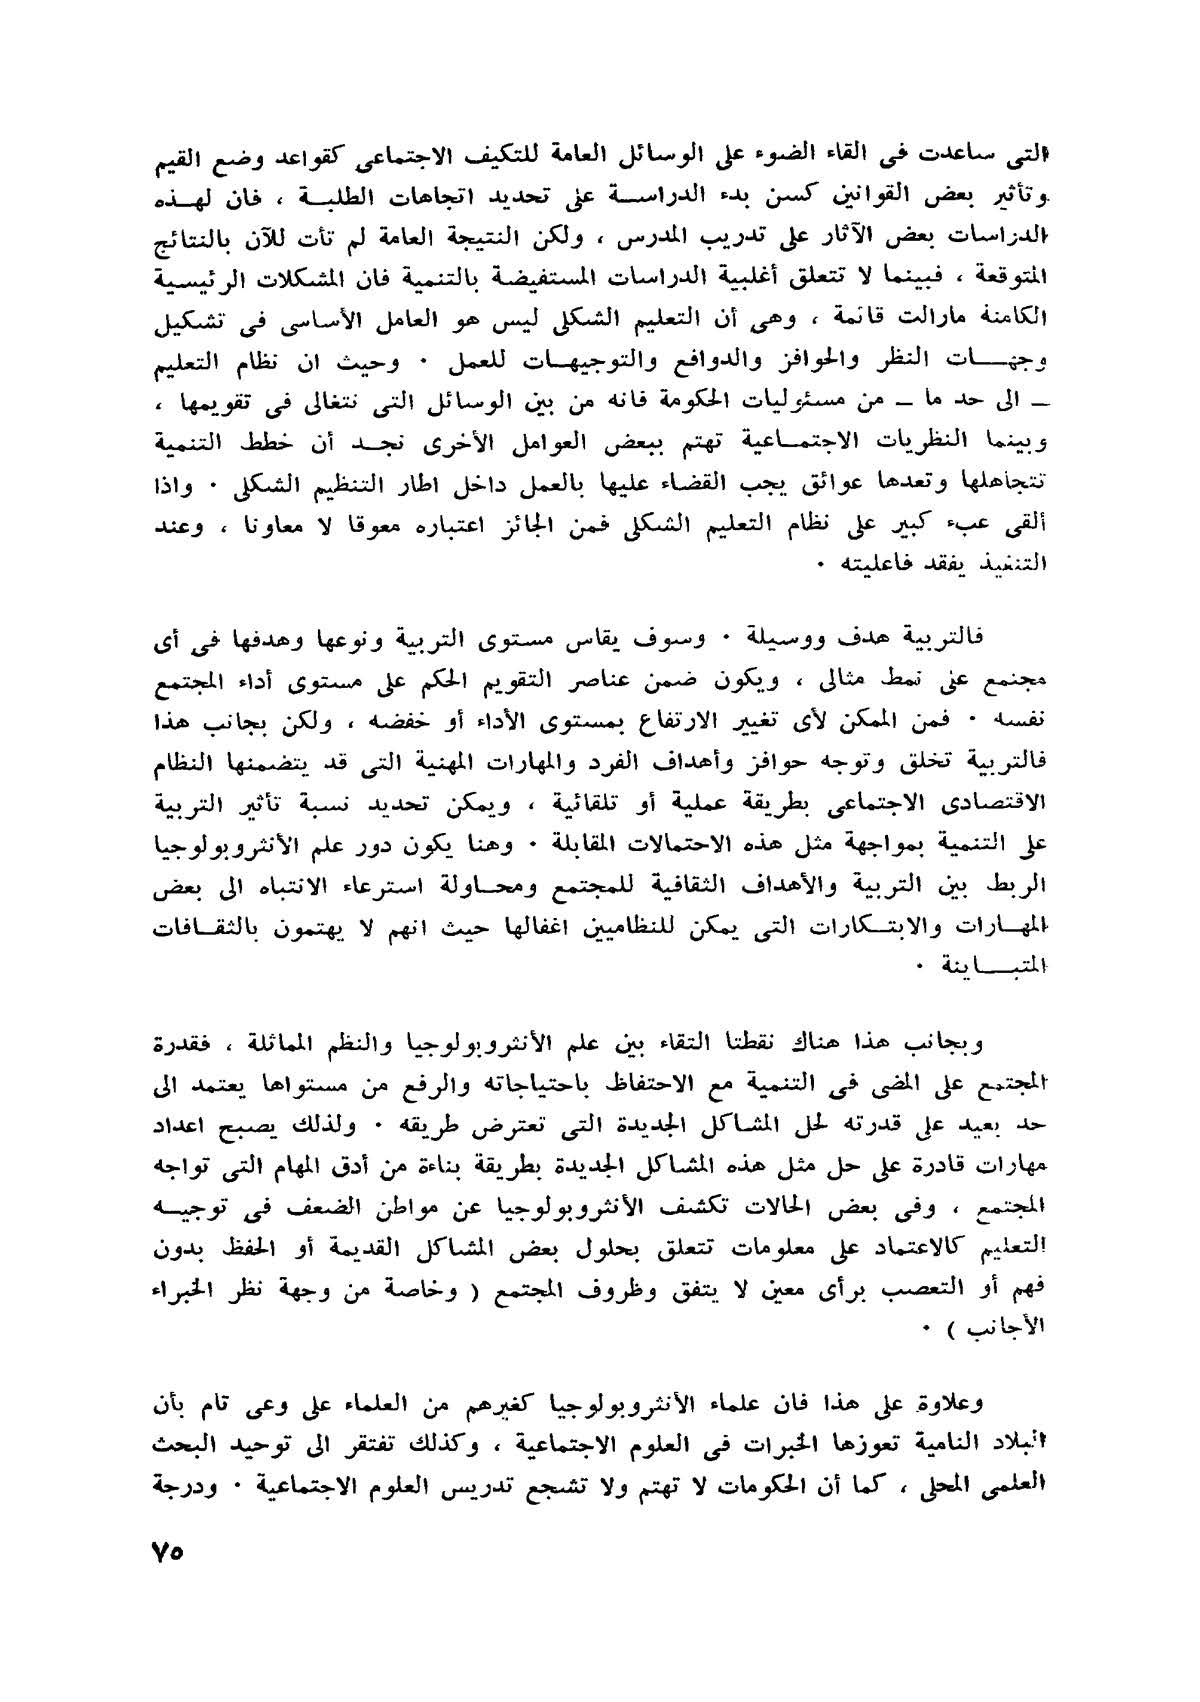 التى ساعدت فى القاء الضوء على الوسائل العامة للتكيف الاجتماعى كقواعد وضع القيم
وتأثير بعض القوانين كسن بدء الدراســة على تحديد اتجاهات الطلبــة ، فان لهــذه
الدراسات بعض الآثار على تدريب المدرس ، ولكن النتيجة العامة لم تأت للآن بالنتائج
المتوقعة ، فبينما لا تتعلق أغلبية الدراسات المستفيضة بالتنمية فان المشكلات الرئيسية
الكامنة مازالت قائمة ، وهى أن التعليم الشكلى ليس هو العامل الأساسى فى تشكيل
وجهــات النظر والحوافز والدوافع والتوجيهــات للعمل ٠ وحيث ان نظام التعليم
ــ الى حد ما ــ من مسئوليات الحكومة فانه من بين الوسائل التى نتغالى فى تقويمها ،
وبينما النظريات الاجتمــاعية تهتم ببعض العوامل الأخرى نجــد أن خطط التنمية
تتجاهلها وتعدها عوائق يجب القضاء عليها بالعمل داخل اطار التنظيم الشكلى ٠ واذا
ألقى عبء كبير على نظام التعليم الشكلى فمن الجائز اعتباره معوقا لا معاونا ، وعند
التنفيذ يفقد فاعليته ٠
فالتربية هدف ووسيلة ٠ وسوف يقاس مستوى التربية ونوعها وهدفها فى أى
مجتمع على نمط مثالى ، ويكون ضمن عناصر التقويم الحكم على مستوى أداء المجتمع
نفسه ٠ فمن الممكن لأى تغيير الارتفاع بمستوى الأداء أو خفضه ، ولكن بجانب هذا
فالتربية تخلق وتوجه حوافز وأهداف الفرد والمهارات المهنية التى قد يتضمنها النظام
الاقتصادى الاجتماعى بطريقة عملية أو تلقائية ، ويمكن تحديد نسبة تأثير التربية
على التنمية بمواجهة مثل هذه الاحتمالات المقابلة ٠ وهنا يكون دور علم الأنثروبولوجيا
الربط بين التربية والأهداف الثقافية للمجتمع ومحــاولة استرعاء الانتباه الى بعض
المهــارات والابتــكارات التى يمكن للنظاميين اغفالها حيث انهم لا يهتمون بالثقــافات
المتبــاينة ٠
وبجانب هذا هناك نقطتا التقاء بين علم الأنثروبولوجيا والنظم المماثلة ، فقدرة
المجتمع على المضى فى التنمية مع الاحتفاظ باحتياجاته والرفع من مستواها يعتمد الى
حد بعيد على قدرته لحل المشاكل الجديدة التى تعترض طريقه ٠ ولذلك يصبح اعداد
مهارات قادرة على حل مثل هذه المشاكل الجديدة بطريقة بناءة من أدق المهام التى تواجه
المجتمع ، وفى بعض الحالات تكشف الأنثروبولوجيا عن مواطن الضعف فى توجيــه
التعليم كالاعتماد على معلومات تتعلق بحلول بعض المشاكل القديمة أو الحفظ بدون
فهم أو التعصب برأى معين لا يتفق وظروف المجتمع ( وخاصة من وجهة نظر الخبراء
الأجانب ) ٠
وعلاوة على هذا فان علماء الأنثروبولوجيا كغيرهم من العلماء على وعى تام بأن
البلاد النامية تعوزها الخبرات فى العلوم الاجتماعية ، وكذلك تفتقر الى توحيد البحث
العلمى المحلى ، كما أن الحكومات لا تهتم ولا تشجع تدريس العلوم الاجتماعية ٠ ودرجة
٧٥